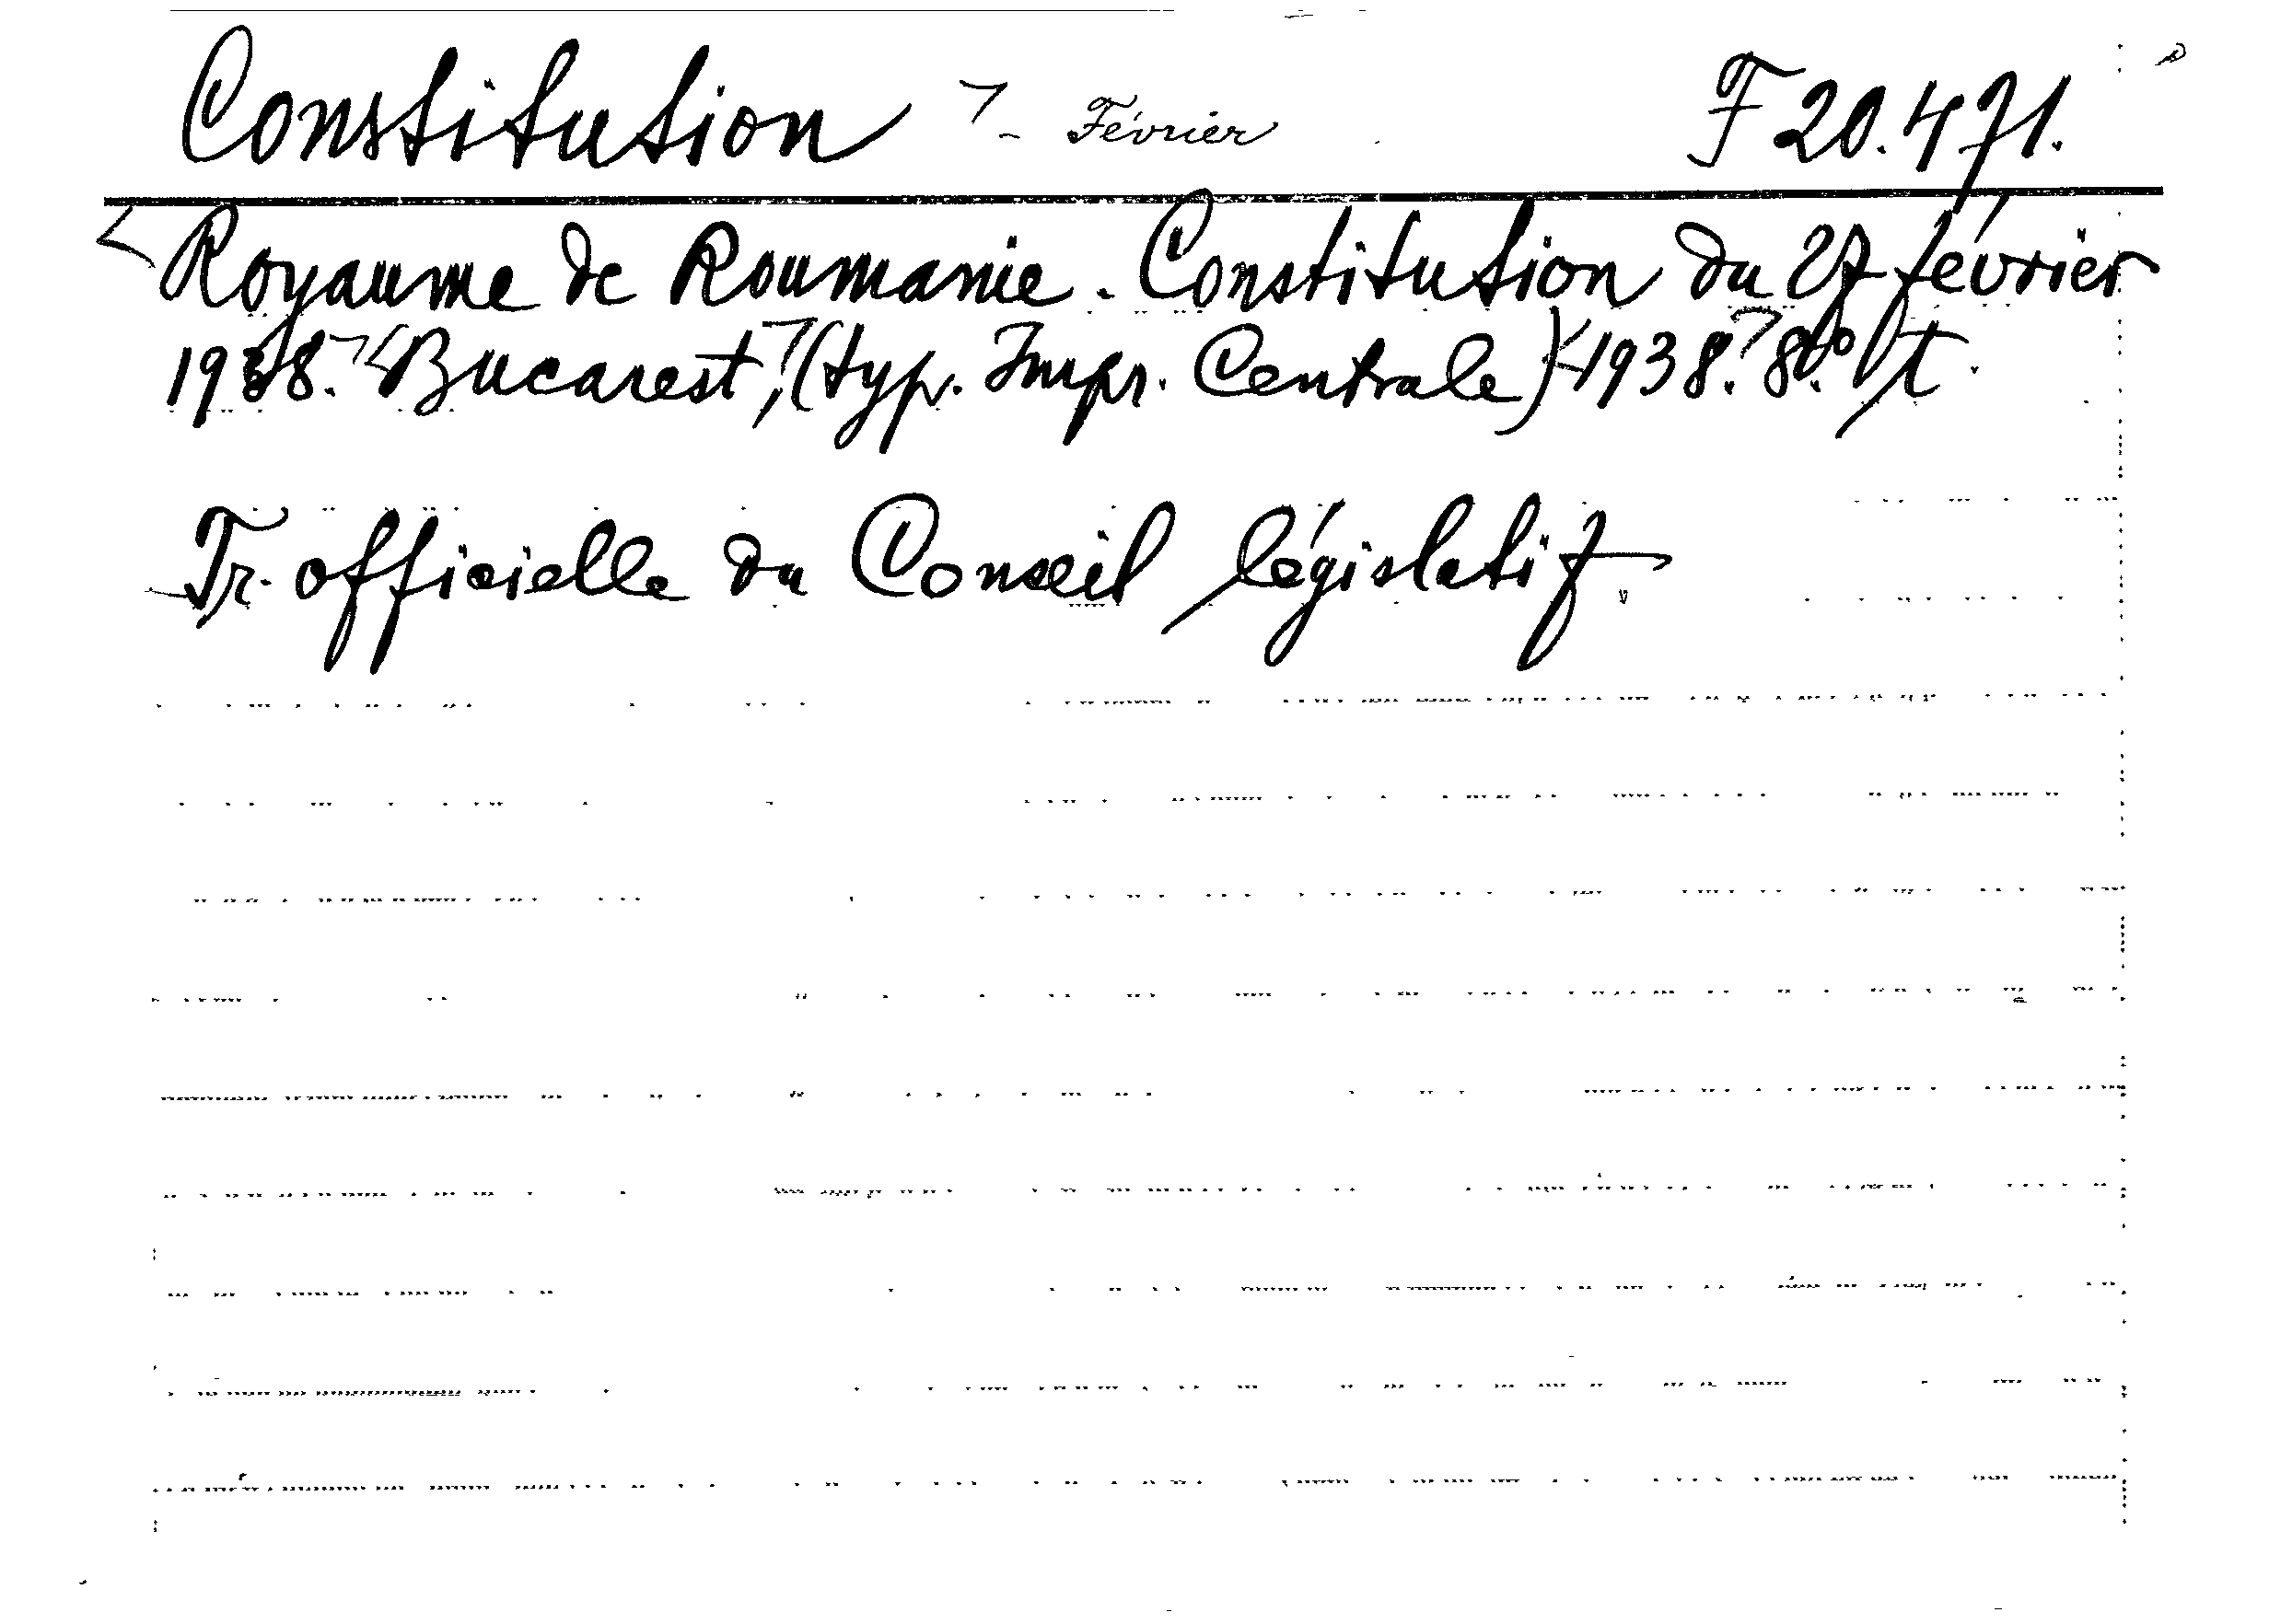 Constitution - Février F 20.471.
Royaume de Roumanie. Constitution du 27 février
1938. Bucarest, (typ. Impr. Centrale) 1938. 8.º t.
Tr. officielle du Conseil législatif.